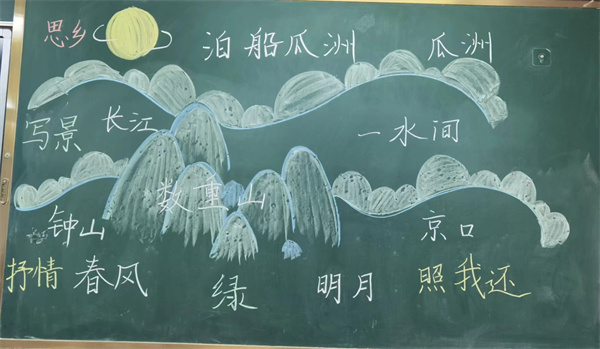 思乡 泊船瓜洲 瓜洲
写景 长江 一水间
数重山
钟山 京口
抒情 春风 绿 明月 照我还